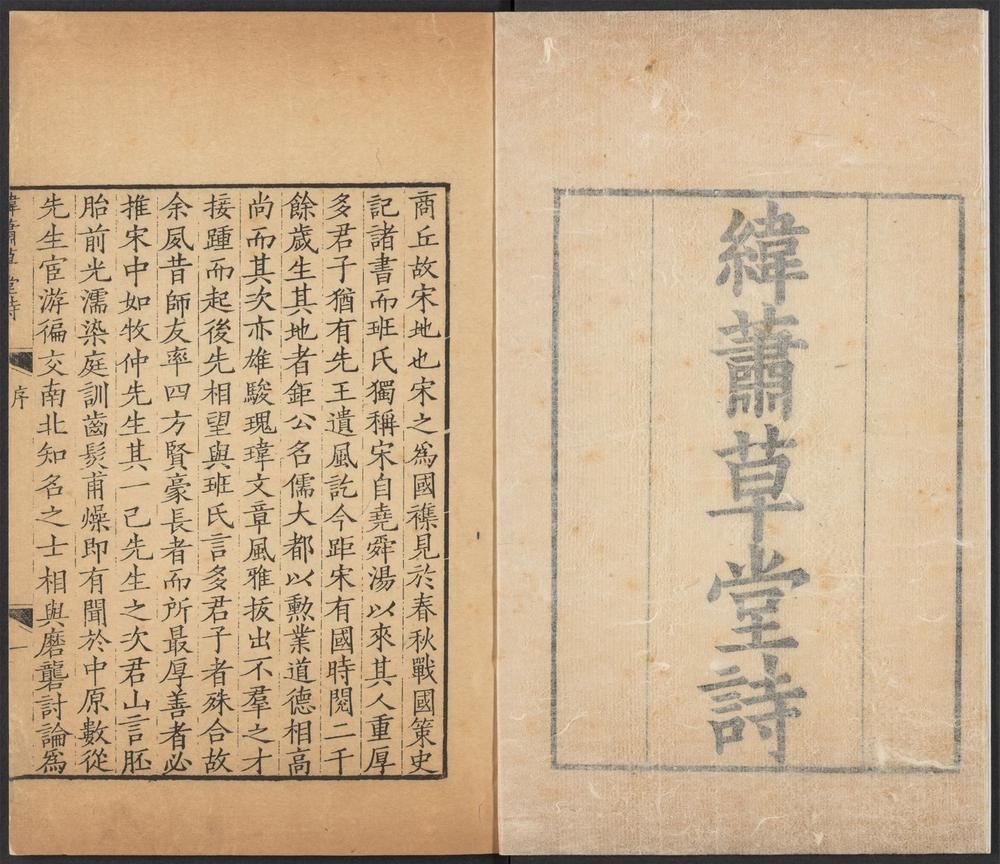 緯蕭草堂詩
商丘故宋地也宋之爲國襍見於春秋戰國策史
記諸書而班氏獨稱宋自堯舜湯以來其人重厚
多君子猶有先王遺風訖今距宋有國時閱二千
餘歲生其地者鉅公名儒大都以勲業道德相高
尚而其次亦雄駿瑰瑋文章風雅抜出不羣之才
接踵而起後先相望與班氏言多君子者殊合故
余夙昔師友率四方賢豪長者而所最厚善者必
推宋中如牧仲先生其一已先生之次君山言胚
胎前光濡染庭訓齒髮甫燥即有聞於中原數從
先生宦游徧交南北知名之士相與磨礱討論爲
緯蕭草堂詩
序
一